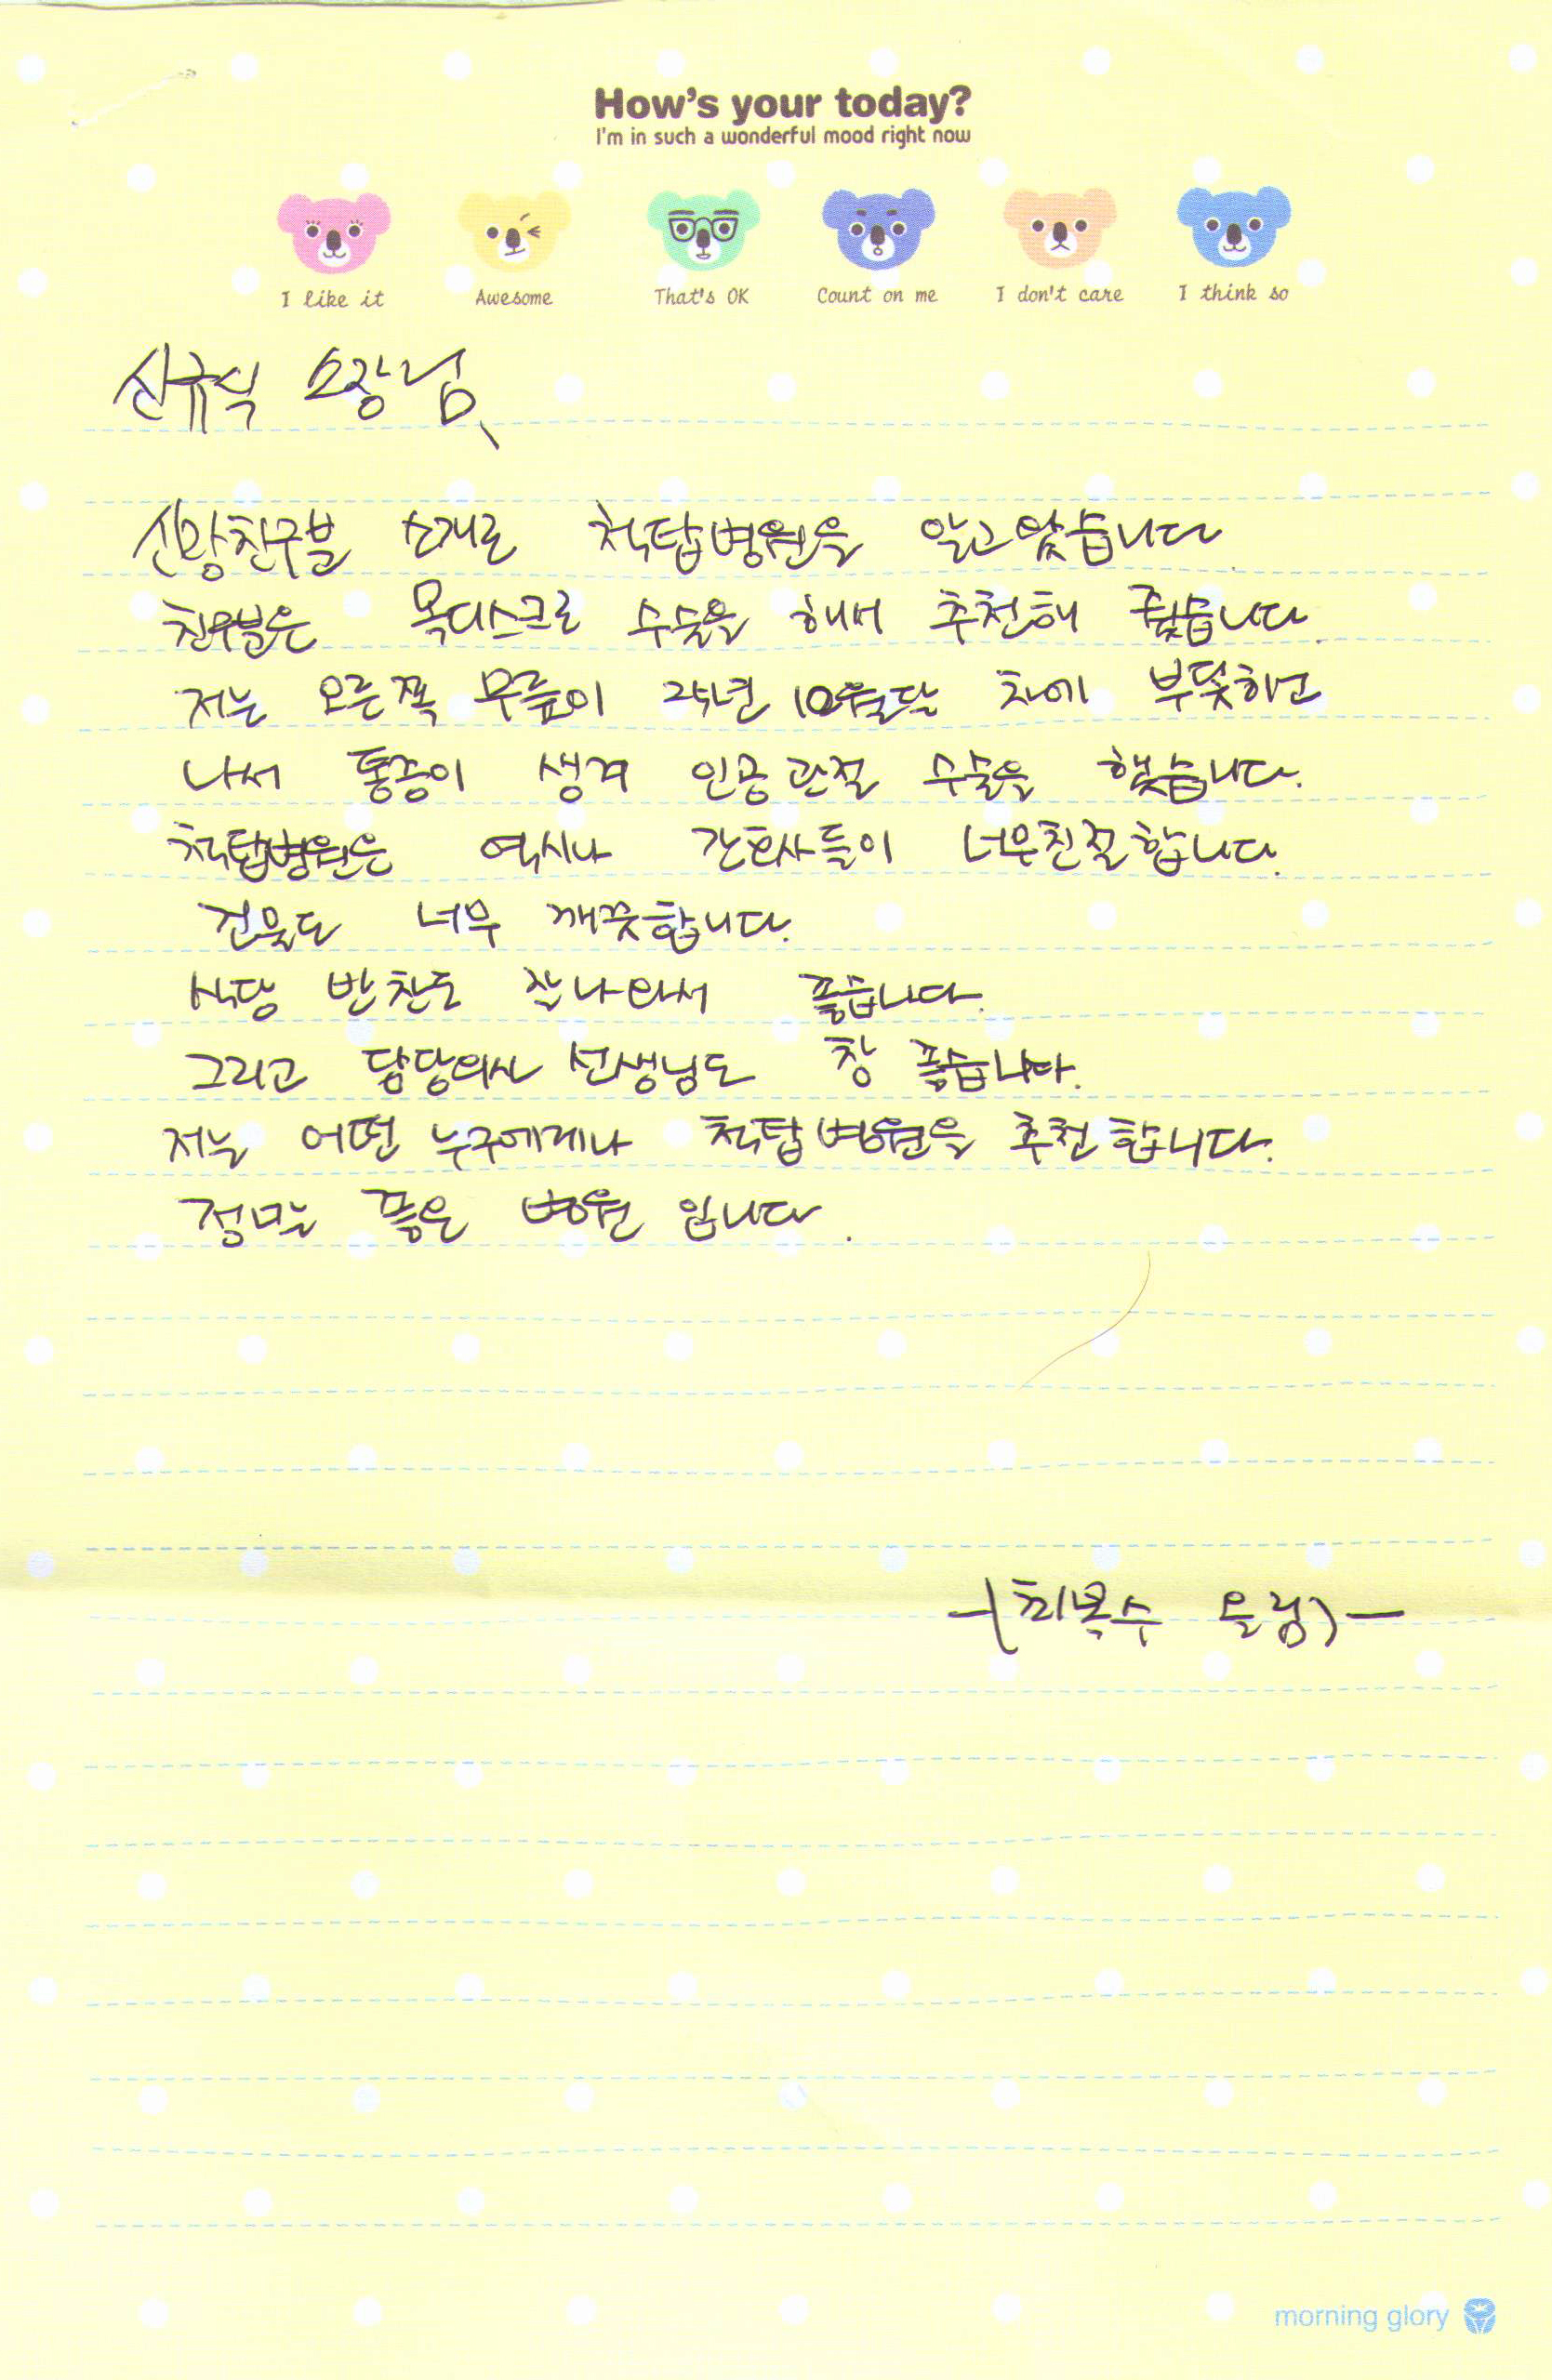 How's your today?
I'm in such a wonderful mood right now
I like it Awesome That's OK Count on me I don't care I think so
신규식 소장님
신랑친구분 소개로 척탑병원을 알고왔습니다
친구분은 목디스크로 수술을 해서 추천해 줬습니다.
저는 오른쪽 무릎이 24년 10월달 차에 부딪히고
나서 통증이 생겨 인공관절 수술을 했습니다.
척탑병원은 역시나 간호사들이 너무친절합니다.
건물도 너무 깨끗합니다.
식당 반찬도 잘나와서 좋습니다.
그리고 담당의사 선생님도 참 좋습니다.
저는 어떤 누구에게나 척탑병원을 추천합니다.
정말 좋은 병원 입니다.
-(최복수 올림)-
morning glory